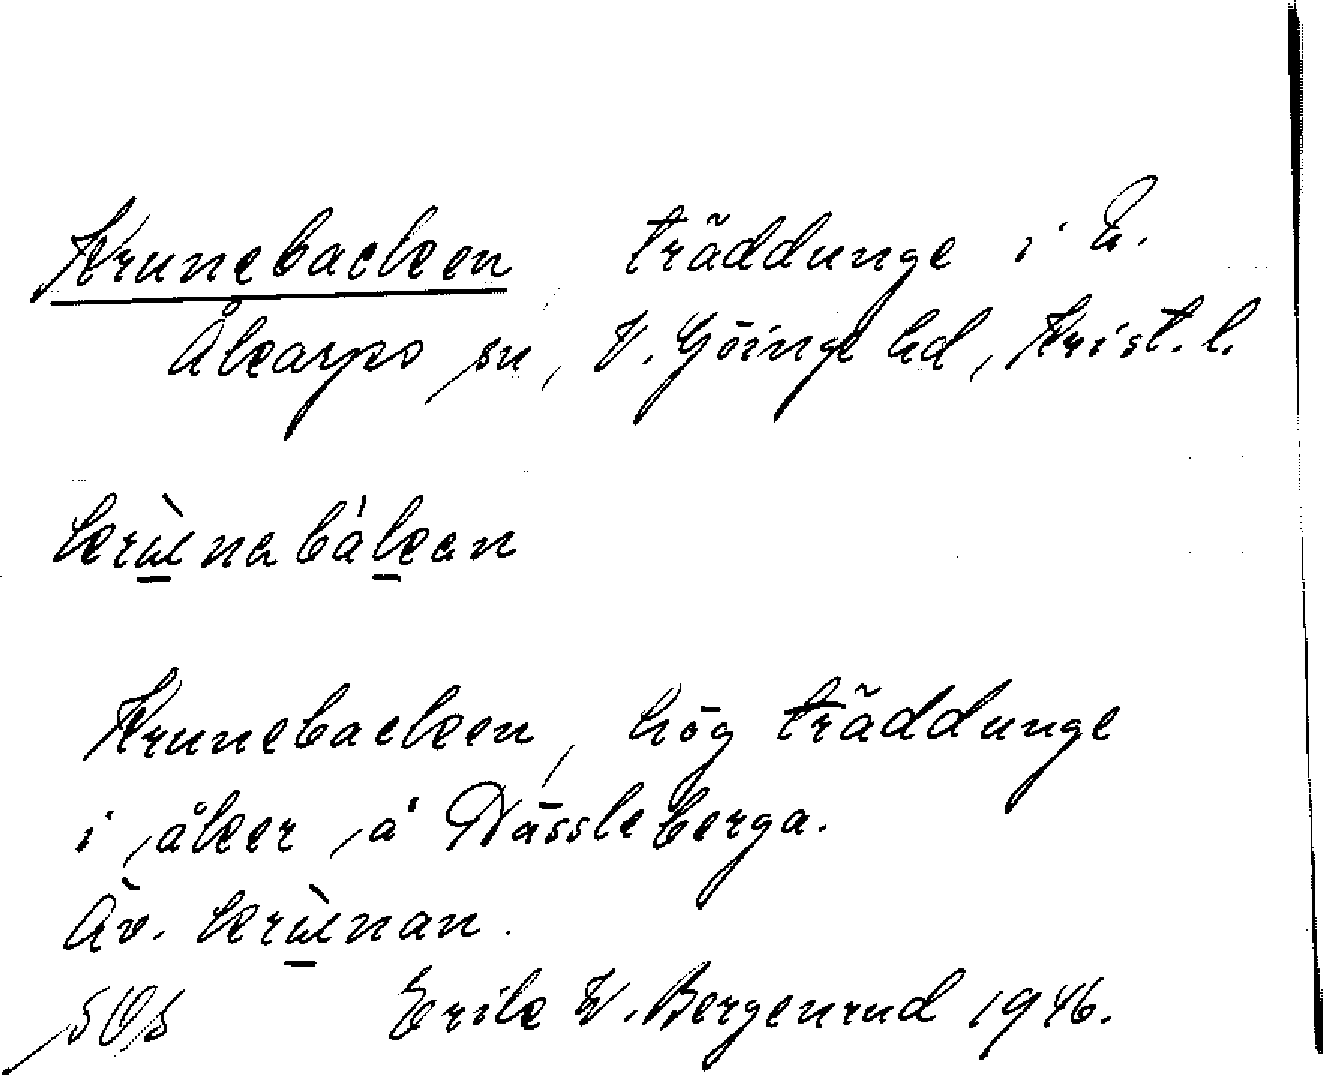 Krunebacken, träddunge i Ö.
Åkarps sn, V. Göinge hd, Krist. l.
krùnabákan
Krunebacken, hög träddunge
i åker å Nässleberga.
Äv. krùnan.
Erik W. Bergenrud 1946.